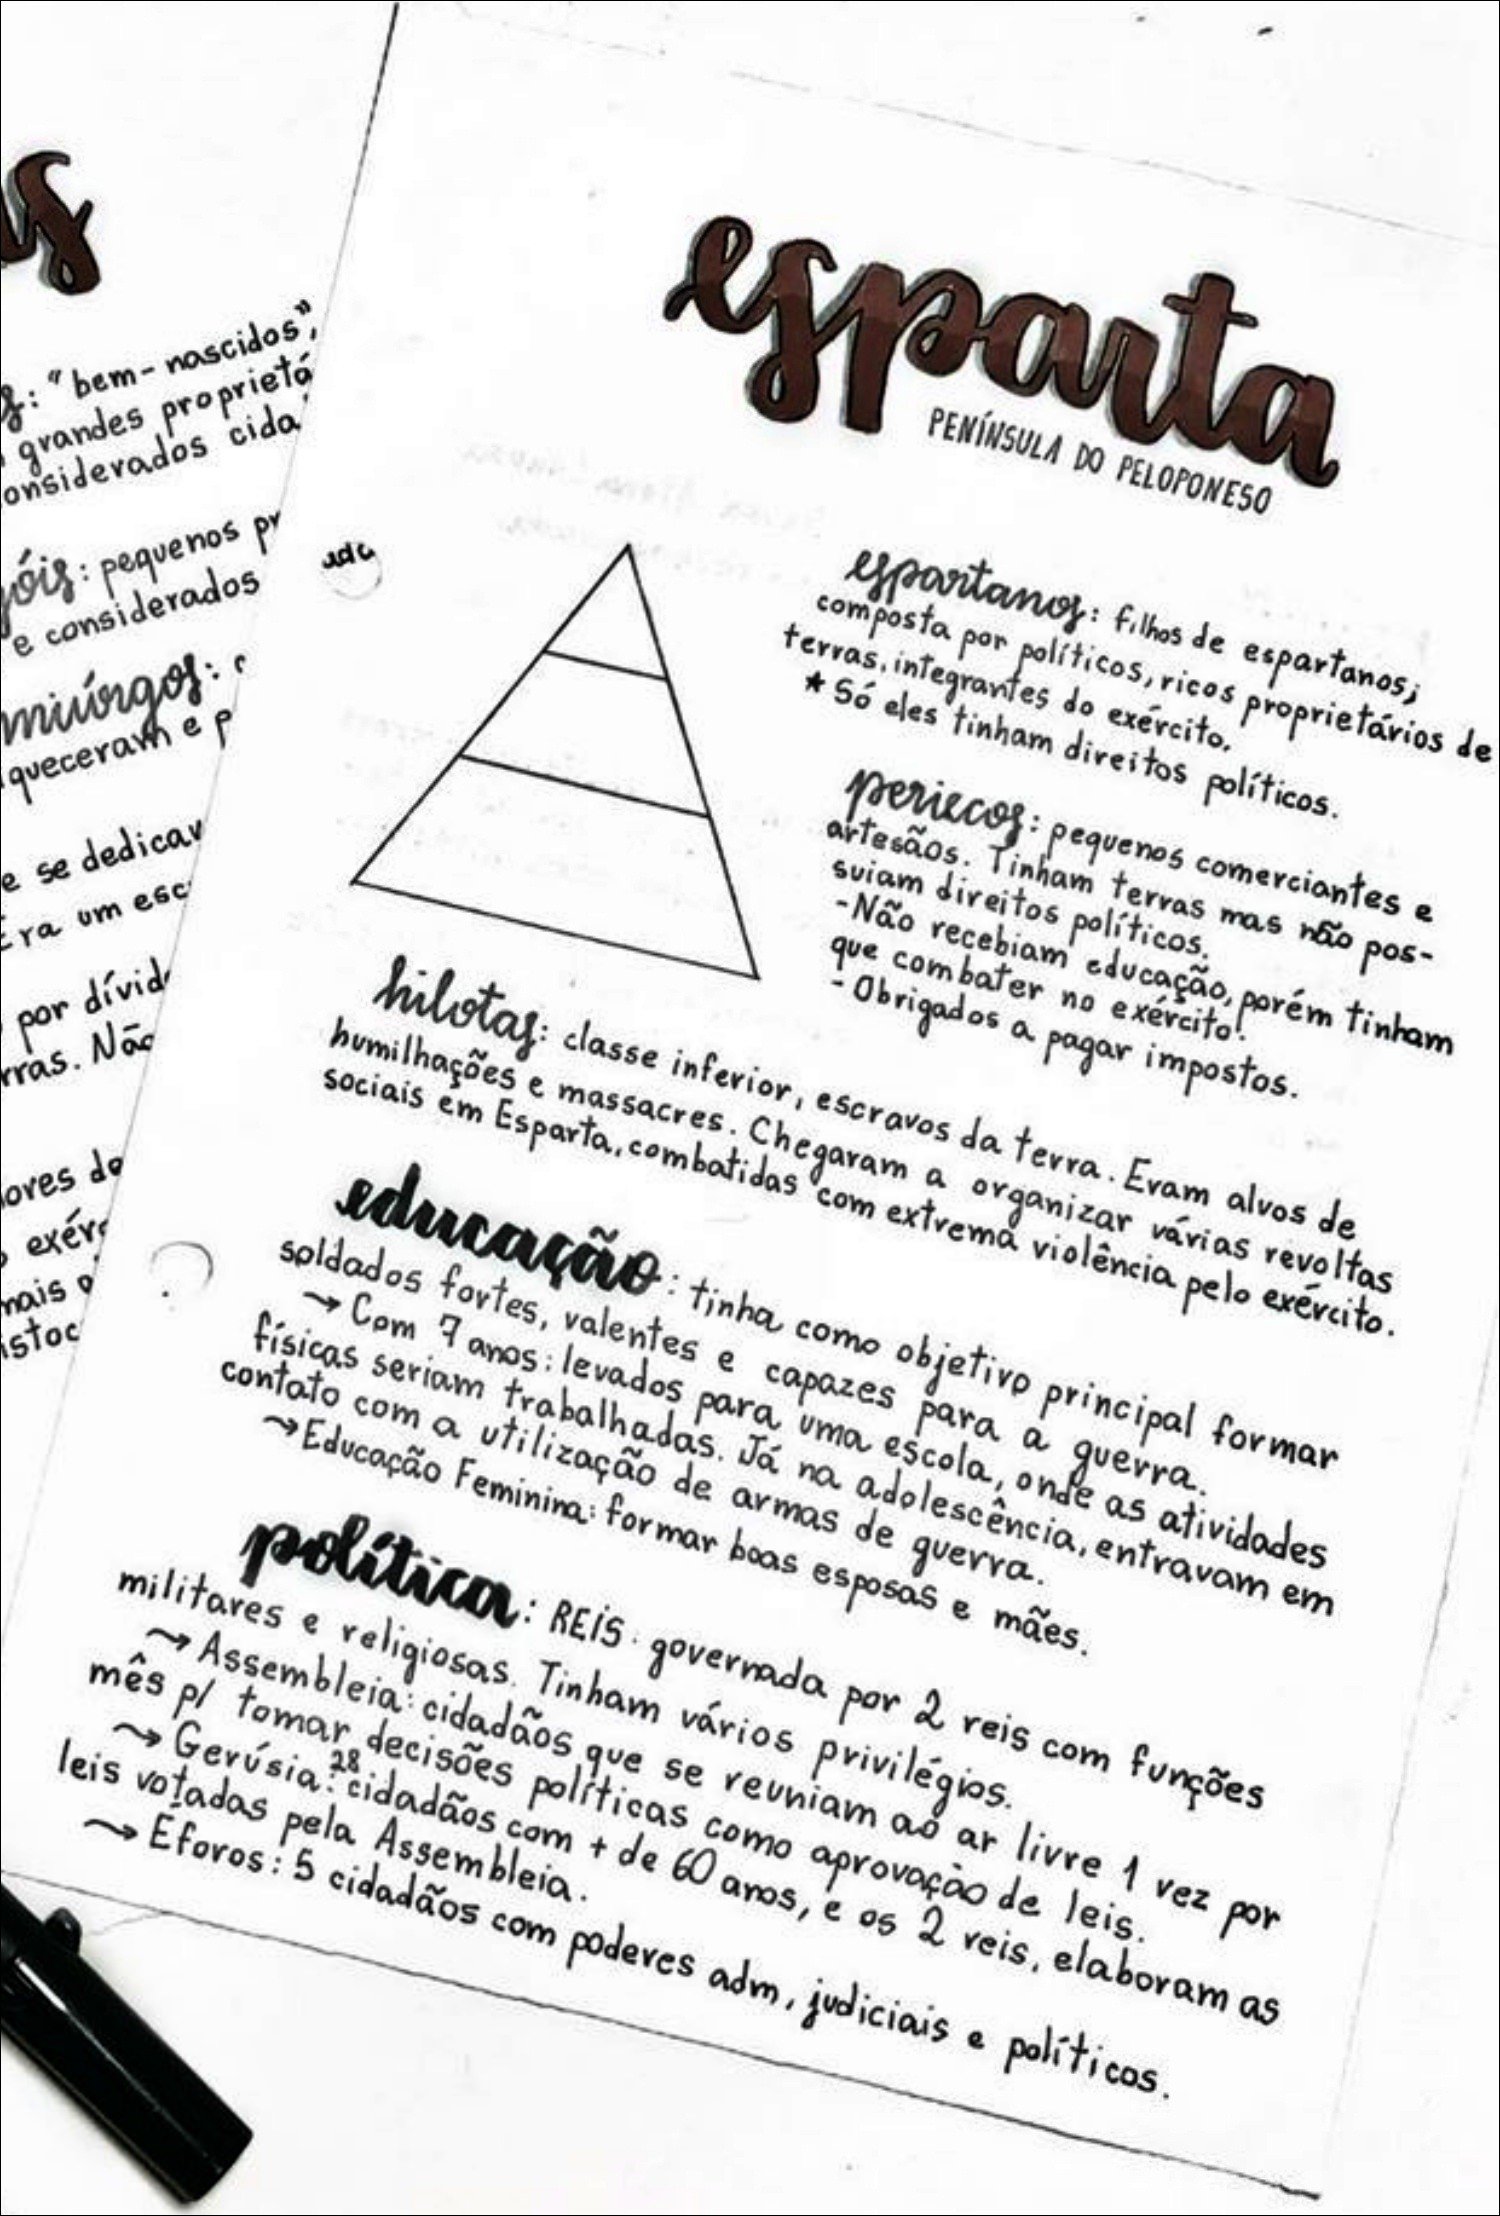 s
: "bem-nascidos",
grandes proprietá
onsiderados cida
óis: pequenos pr
e considerados
miúrgos:
queceram e p
e se dedicar
Era um esc
por dívid
rras. Não
ores do
exérc
mais
istoc
esparta
PENÍNSULA DO PELOPONESO
espartanos: filhos de espartanos;
composta por políticos, ricos proprietários de
terras, integrantes do exército.
* Só eles tinham direitos políticos.
periecos: pequenos comerciantes e
artesãos. Tinham terras mas não pos-
suiam direitos políticos.
- Não recebiam educação, porém tinham
que combater no exército!
- Obrigados a pagar impostos.
hilotas: classe inferior, escravos da terra. Eram alvos de
humilhações e massacres. Chegaram a organizar várias revoltas
sociais em Esparta, combatidas com extrema violência pelo exército.
educação: tinha como objetivo principal formar
soldados fortes, valentes e capazes para a guerra.
→ Com 7 anos: levados para uma escola, onde as atividades
físicas seriam trabalhadas. Já na adolescência, entravam em
contato com a utilização de armas de guerra.
→ Educação Feminina: formar boas esposas e mães.
política: REIS: governada por 2 reis com funções
militares e religiosas. Tinham vários privilégios.
→ Assembleia: cidadãos que se reuniam ao ar livre 1 vez por
mês p/ tomar decisões políticas como aprovação de leis.
→ Gerúsia: 28 cidadãos com + de 60 anos, e os 2 reis, elaboram as
leis votadas pela Assembleia.
→ Éforos: 5 cidadãos com poderes adm, judiciais e políticos.